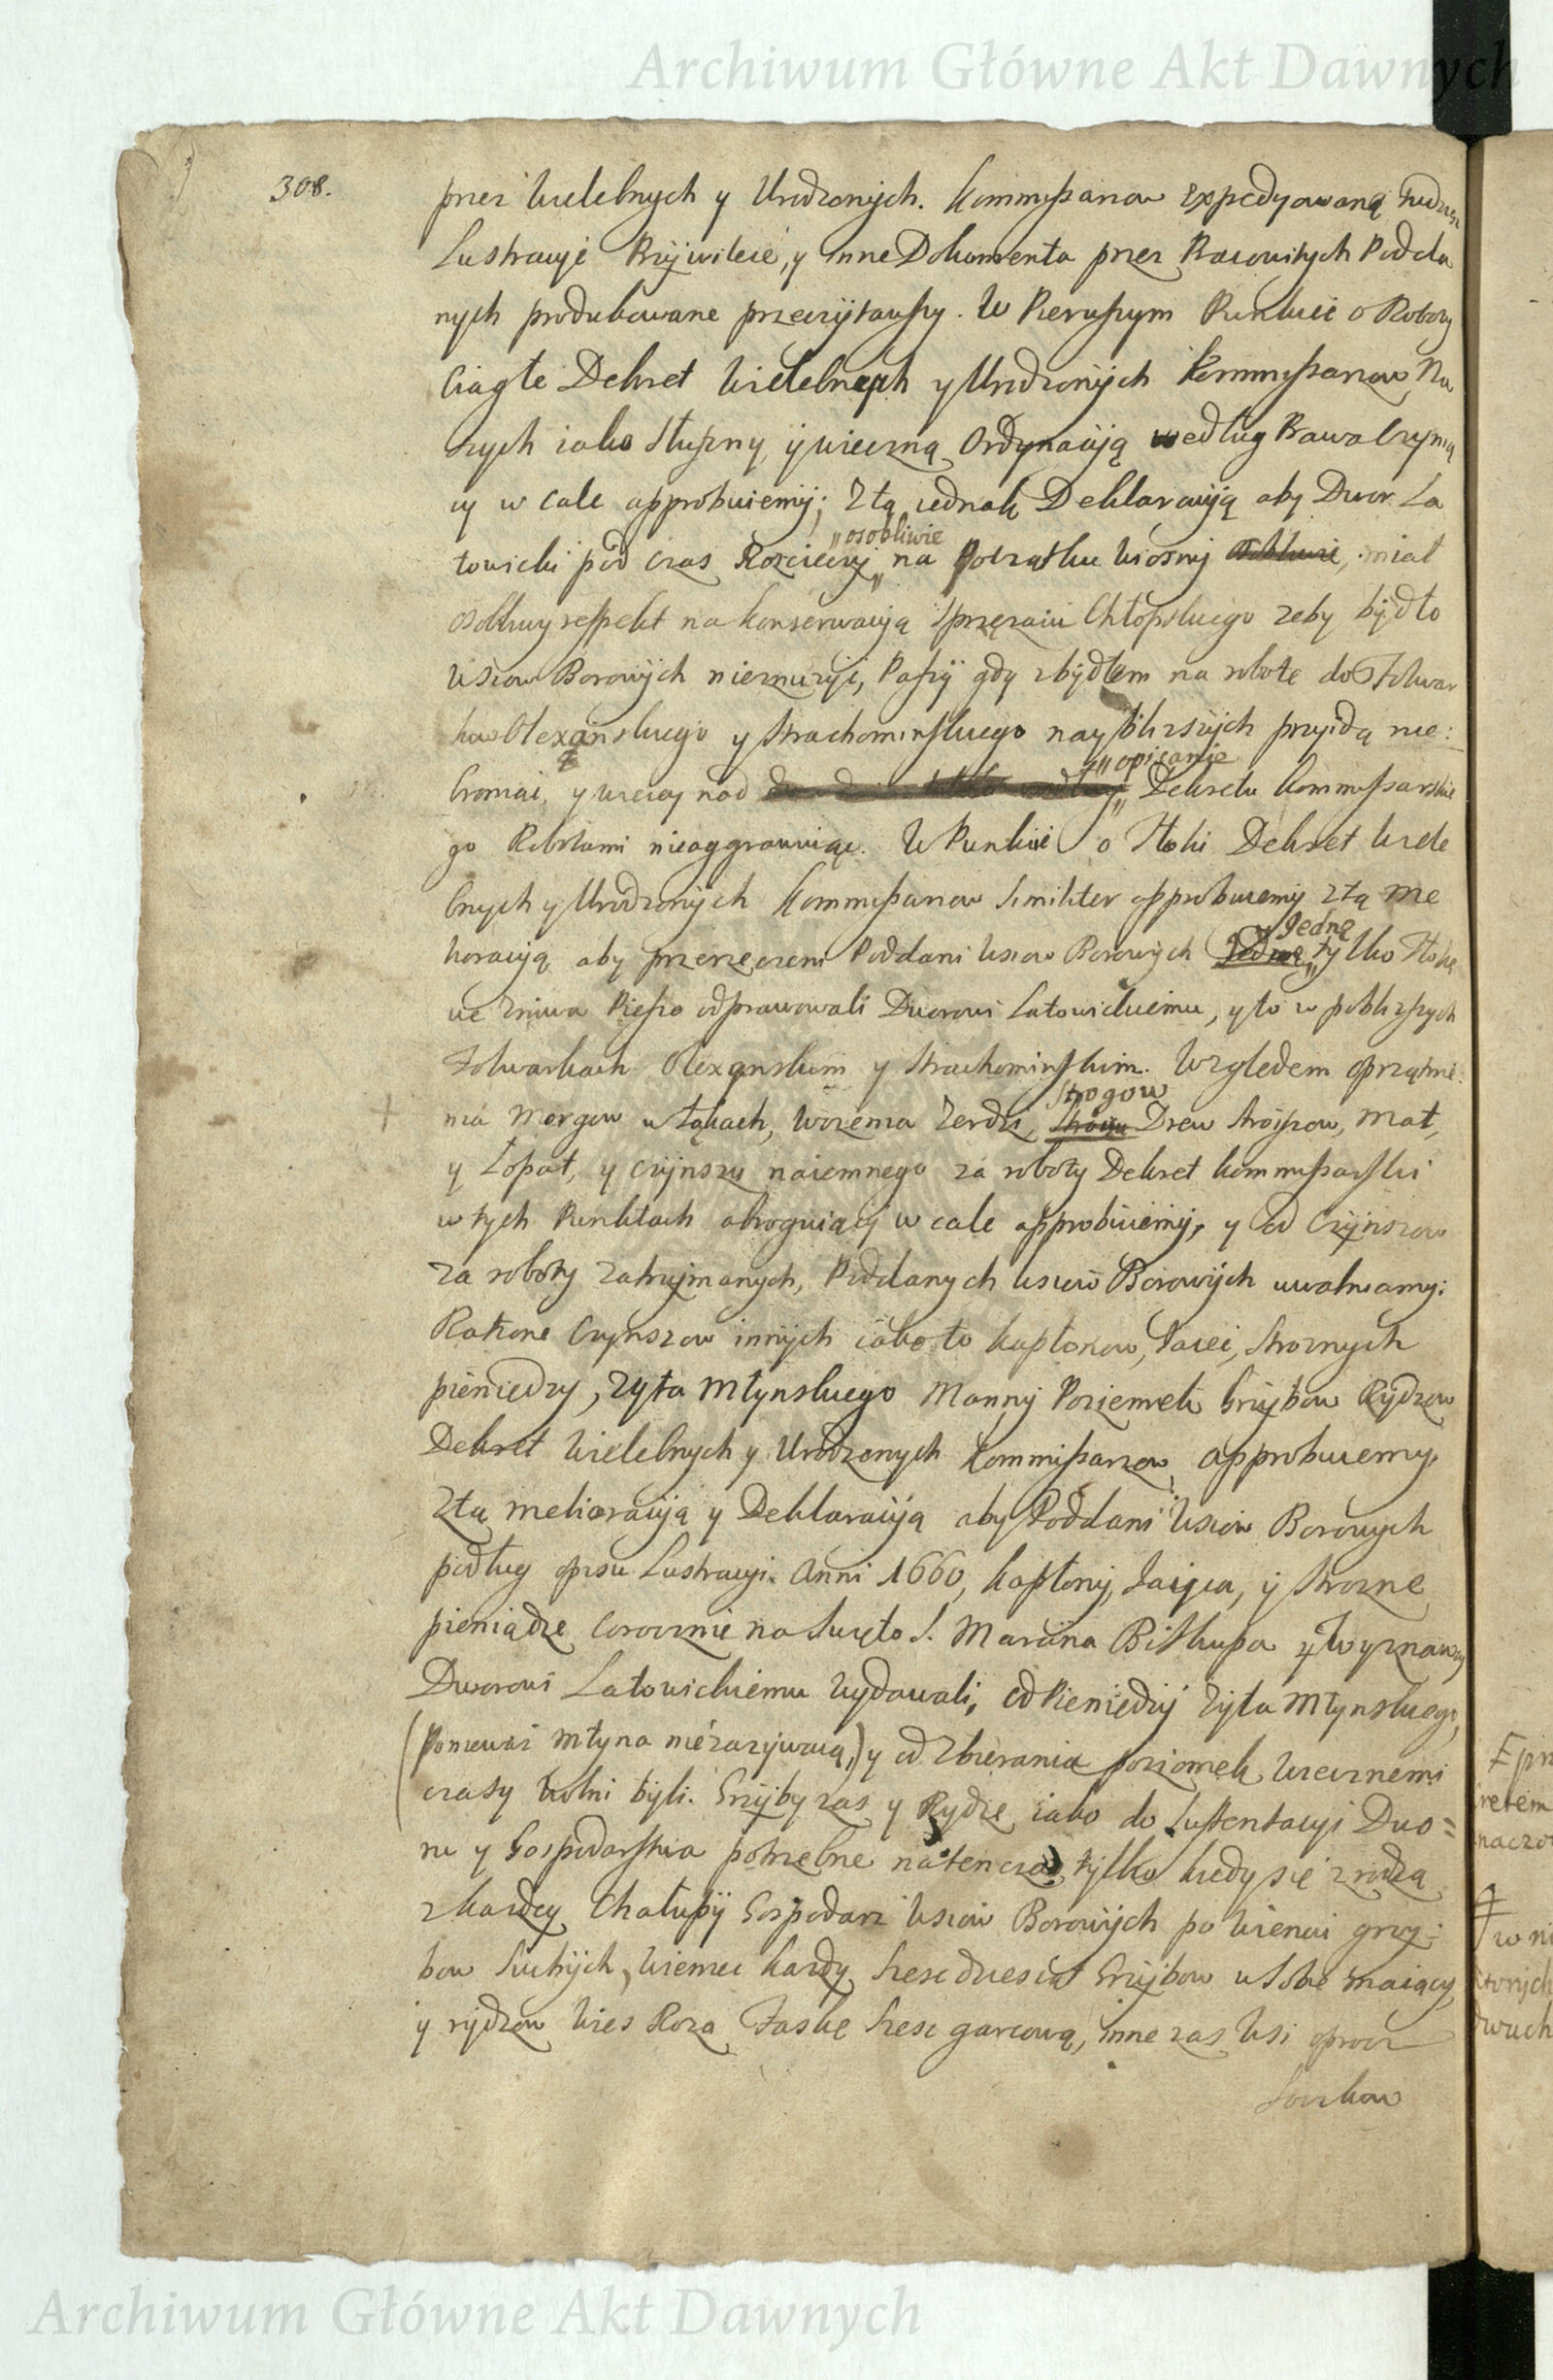 Archiwum Główne Akt Dawnych
308.
przez Wielebnych y Urodzonych. Kommyssarzow expedyowaną tudziesz
Lustracyie Przywileie, y inne Dokumenta przez Pracowitych Podda
nych produkowane przeczytawszy. W Pierwszym Punkcie o Roboty
Ciągłe Dekret Wielebnych y Urodzonych Kommyssarzow Na
szych iako słuszny, y wieczną Ordynacyją według Prawa czynią
cy w cale approbuiemy; Z tą iednak Deklaracyją aby Dwor La
towicki pod czas Rozcieczy „osobliwie na Początku Wiosny osobliwie, miał
osobliwy respekt na konserwacyją Sprzężaiu Chłopskiego zeby bydło
Wsiow Borowych niezniszczyć, Paszy gdy z bydłem na robote do Folwar
kow Olexanskiego y Strachominskiego nayblizszych przyidą nie:
broniąc, y wiecey nad „opisanie Dekretu Kommissarskie
go Robotami nieaggrawuiąc. W Punkcie o Tłoki Dekret Wiele
bnych y Urodzonych Kommyssarzow similiter approbuiemy z tą me
lioracyją aby przerzeczeni Poddani Wsiow Borowych Jedną tylko Tłokę
we zniwa Pieszo odprawowali Dworowi Latowickiemu, y to w poblizszych
Folwarkach Olexanskim y Strachominskim. Względem oprzątnie:
nia Morgow w Łąkach, Wozenia Zerdzi, Stogow Drew Stroiszow, Mat,
y Łopat, y czynszu naiemnego za roboty Dekret Kommissarski
w tych Punktach abroguiący w cale approbuiemy, y od Czynszow
za roboty zatrzymanych, Poddanych Wsiow Borowych uwalniamy:
Ratione Czynszow innych iako to Kapłonow, Jaiec, Stroznych
pieniedzy, Zyta Młynskiego Manny Poziemek Grzybow Rydzow
Dekret Wielebnych y Urodzonych Kommissarzow approbuiemy,
Z tą melioracyią y Deklaracyią aby Poddani Wsiow Borowych
podług opisu Lustracyi Anni 1660, Kapłony, Jaiyca, y Strozne
pieniądze corocznie na Swięto S. Marcina Biskupa y Wyznawcy
Dworowi Latowickiemu wydawali, od Pieniedzy Zyta Młynskiego,
(Poniewaz Młyna niezazywaią,) y od Zbierania poziomek wiecznemi
czasy wolni byli. Grzyby zas y Rydze iako do Sustentacyi Dwo=
ru y Gospodarstwa potrzebne natenczas, tylko kiedy się zrodzą
z kazdey Chałupy Gospodarz Wsiow Borowych po Wiencu grzy:
bow Suchych, Wieniec kazdy szescdziesiąt Grzybow w sobie maiący
y rydzow Wies Roza Faske szesc garcową, inne zas Wsi oprocz
Archiwum Główne Akt Dawnych